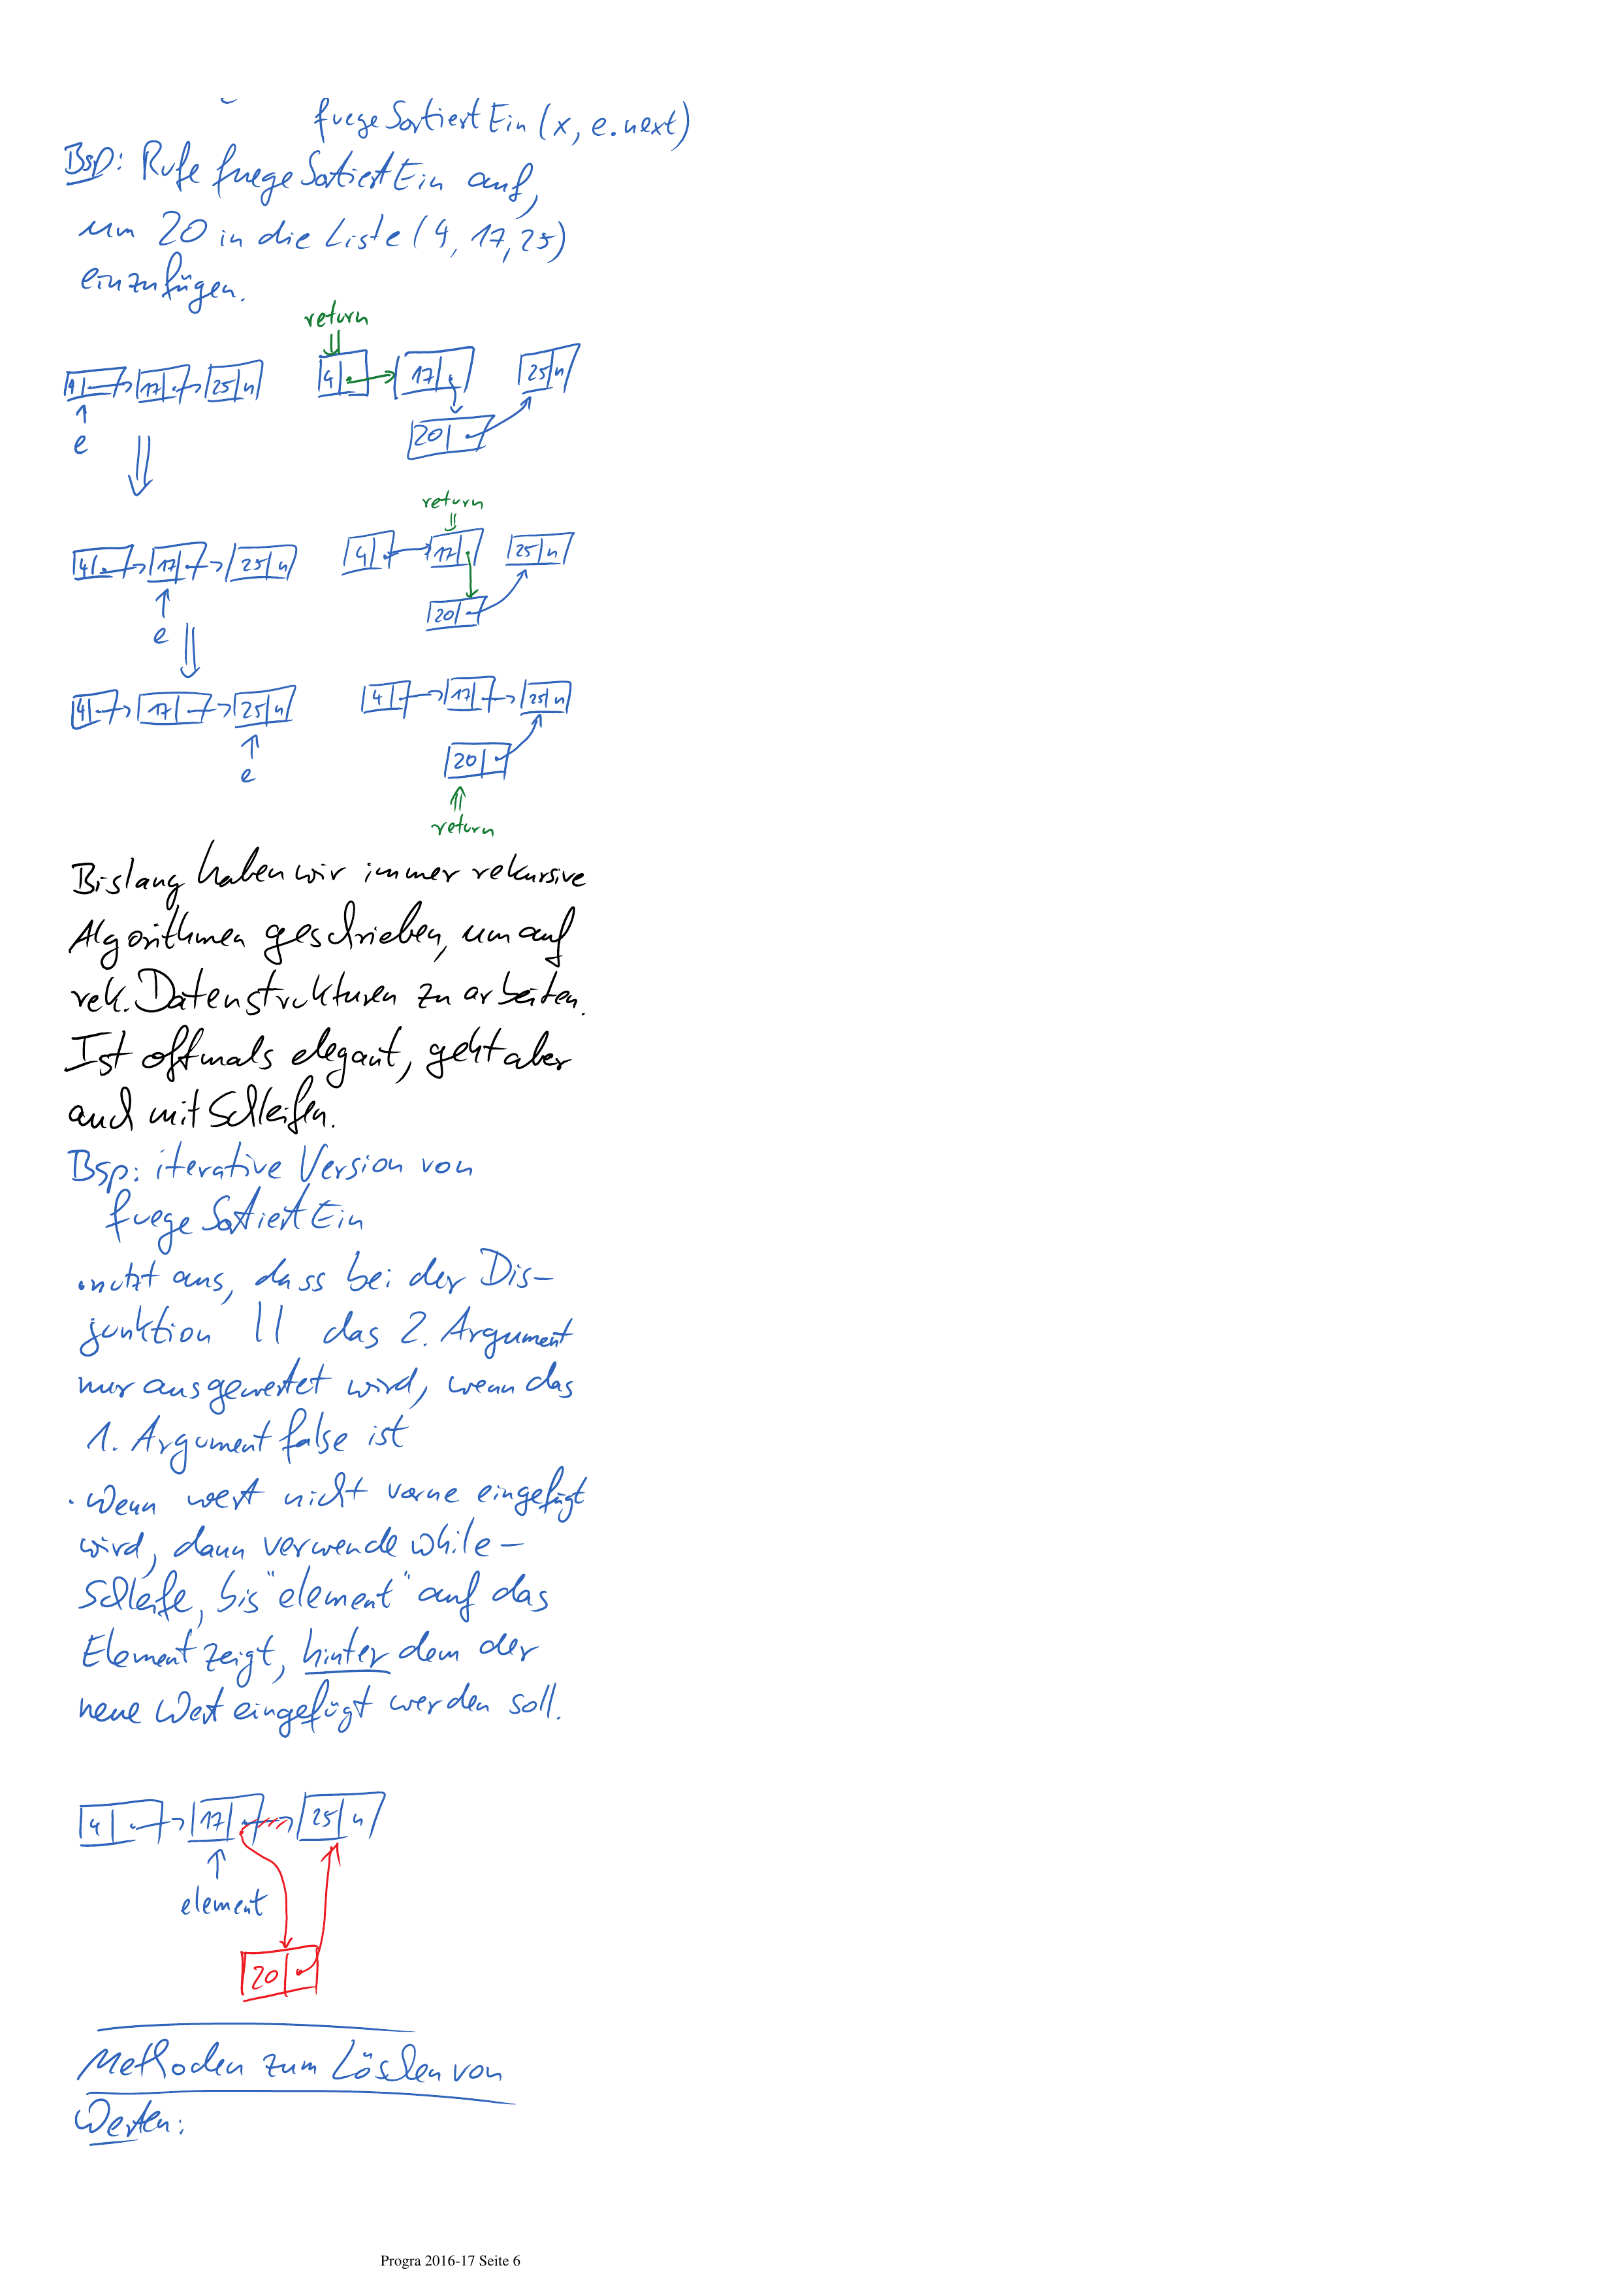 fuegeSortiertEin (x, e.next)
Bsp: Rufe fuegeSortiertEin auf,
um 20 in die Liste (4, 17, 25)
einzufügen.
return
4 17 25 n
4 17 25 n
e
20
return
4 17 25 n
4 17 25 n
e
20
4 17 25 n
4 17 25 n
e
20
return
Bislang haben wir immer rekursive
Algorithmen geschrieben, um auf
rek. Datenstrukturen zu arbeiten.
Ist oftmals elegant, geht aber
auch mit Schleifen.
Bsp: iterative Version von
fuegeSortiertEin
• nutzt aus, dass bei der Dis-
junktion || das 2. Argument
nur ausgewertet wird, wenn das
1. Argument false ist
• Wenn wert nicht vorne eingefügt
wird, dann verwende while-
Schleife, bis "element" auf das
Element zeigt, hinter dem der
neue Wert eingefügt werden soll.
4 17 25 n
element
20
Methoden zum Löschen von
Werten:
Progra 2016-17 Seite 6